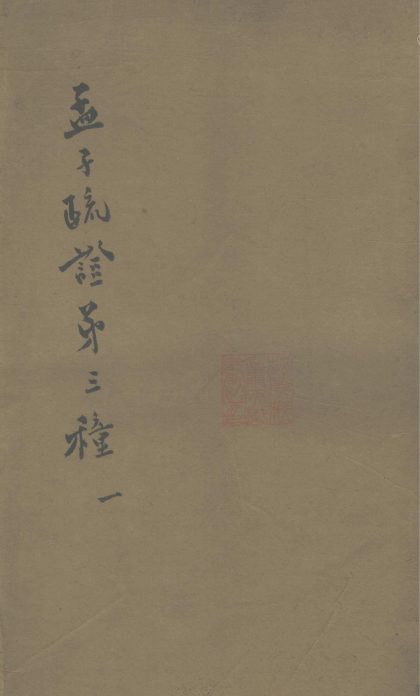 孟子疏證第三種
一